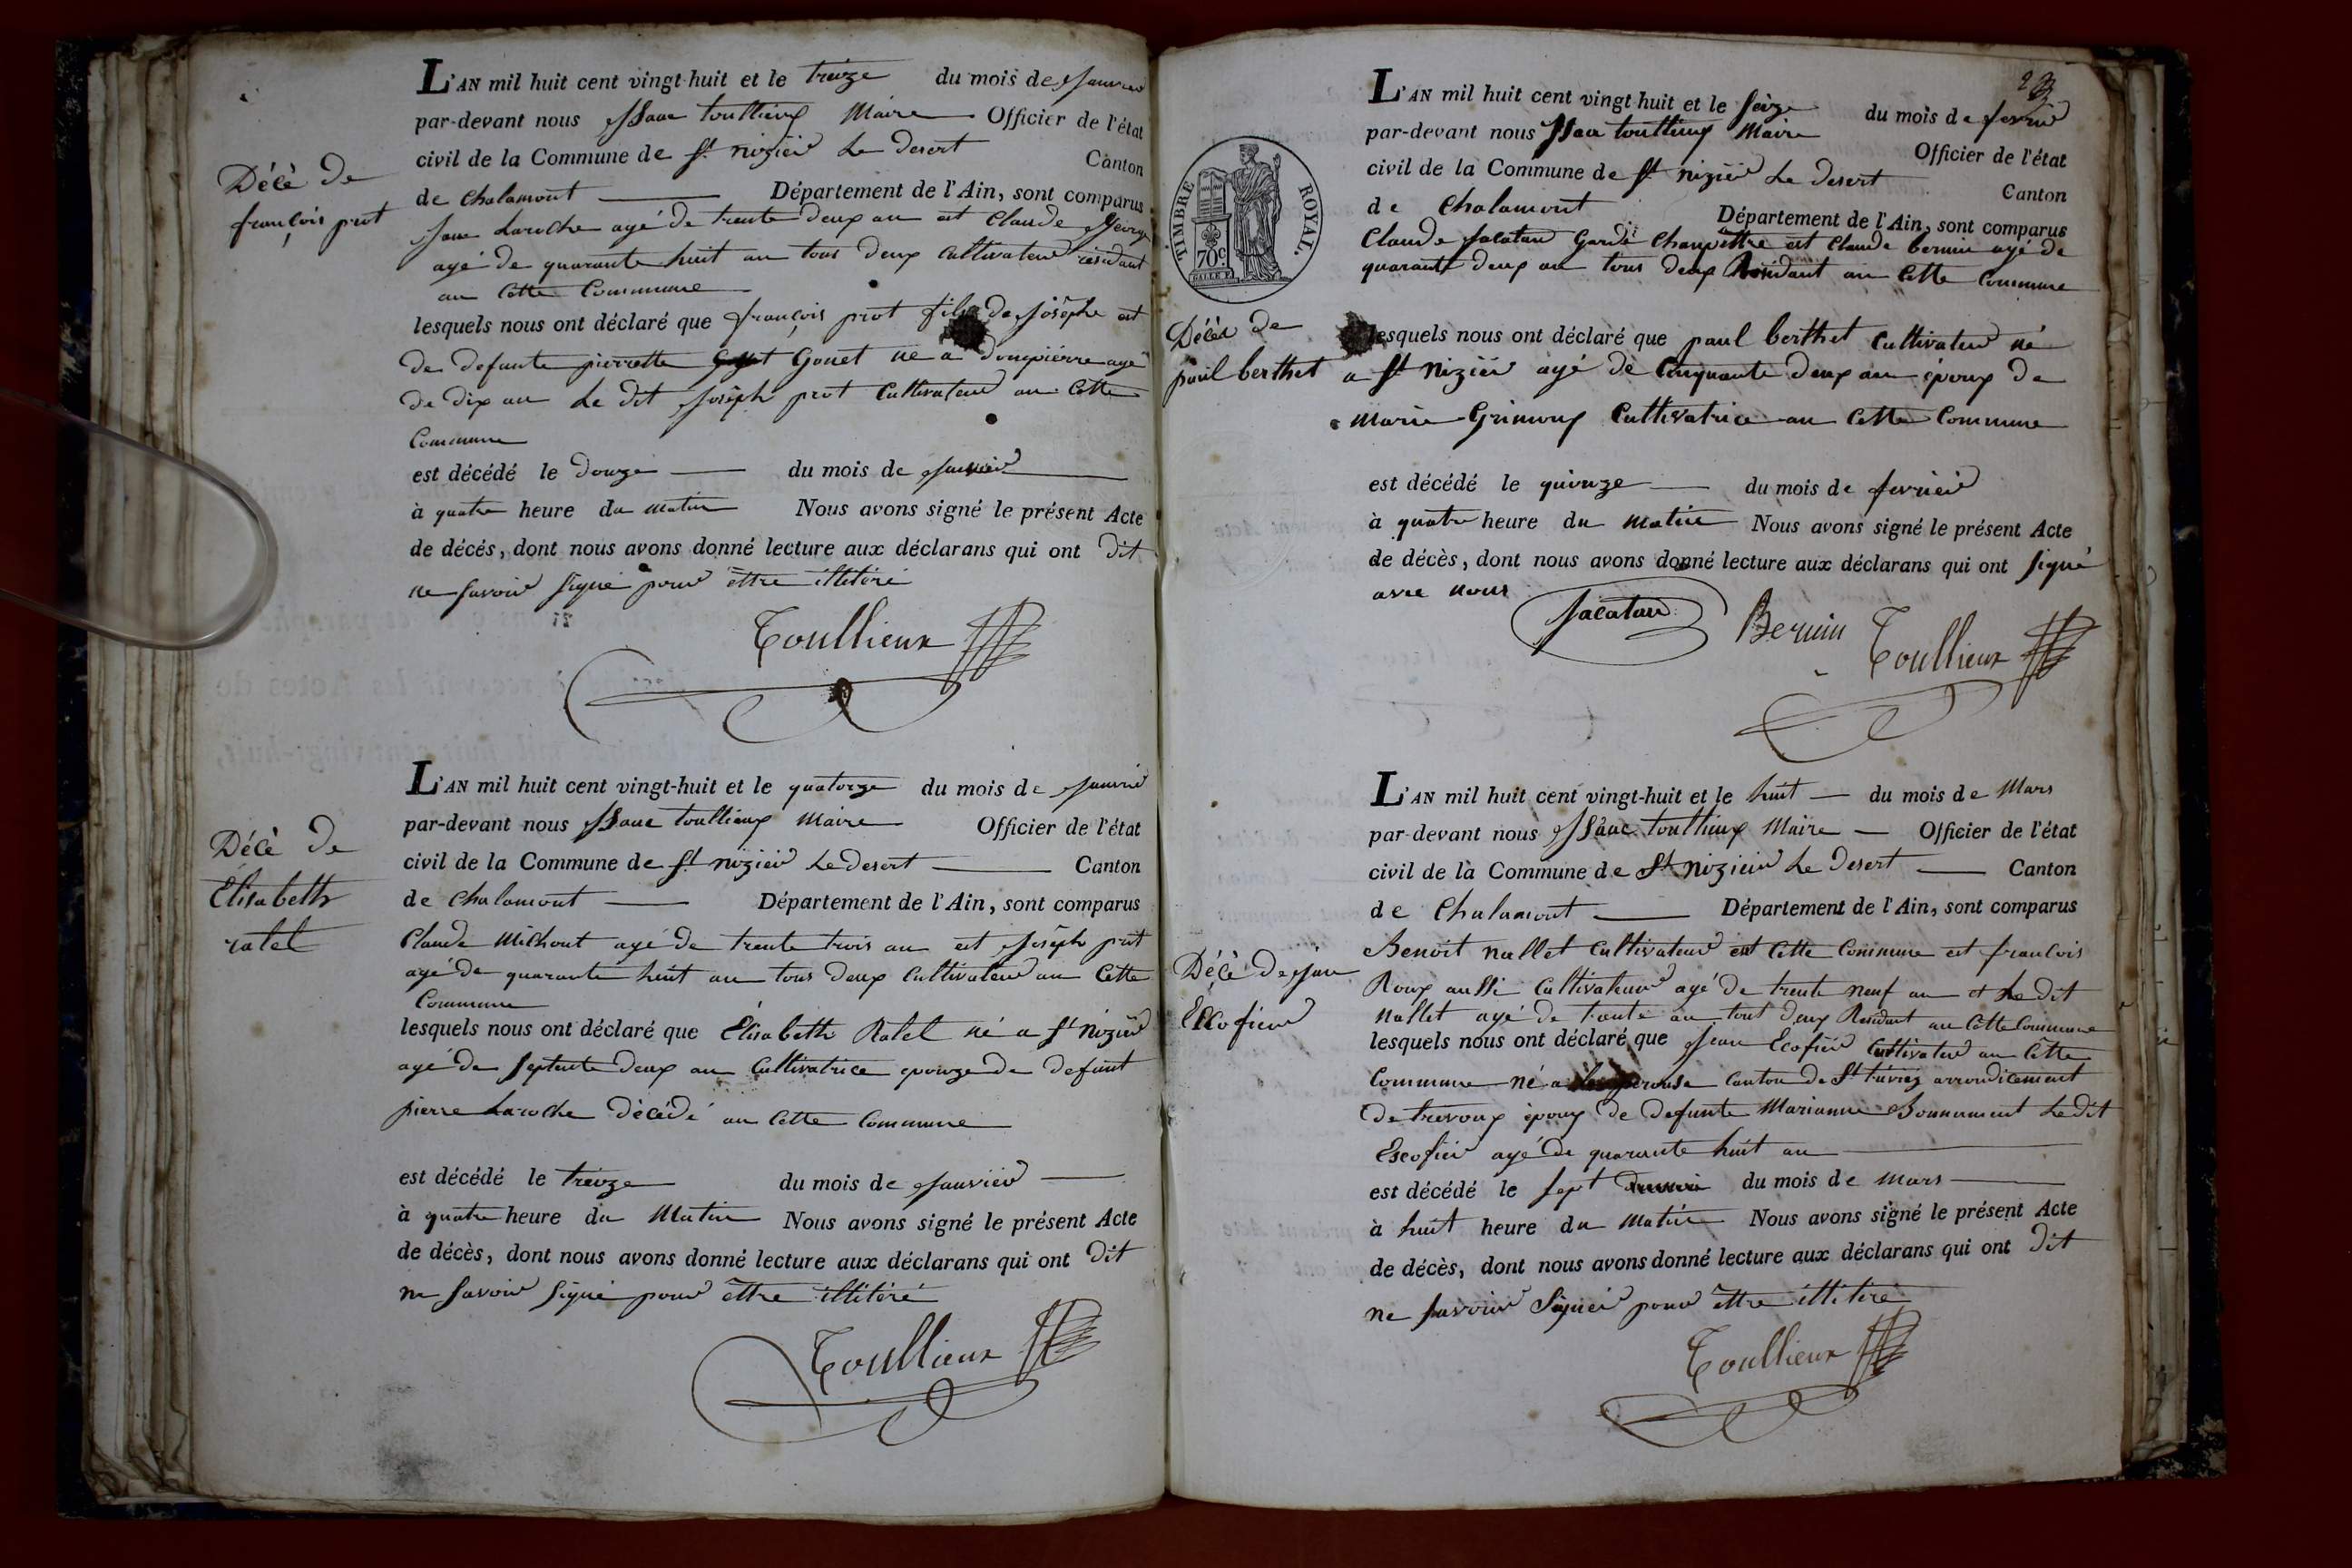 Décè de
françois prot
L'AN mil huit cent vingt-huit et le treize du mois de Janvier
par-devant nous Isaac toullieux Maire Officier de l'état
civil de la Commune de St. nizier Le desert Canton
de Chalamont Département de l'Ain, sont comparus
Jean Laroche agé de trente deux an et Claude
agé de quarante huit an tous deux Cultivateur résidant
an Cette Commune
lesquels nous ont déclaré que françois prot fils de Josèphe et
de defunte pierrette Gonet né a dompiérre agé
de dix an Le dit Joséph prot Cultivateur an Cette
Commune
est décédé le douze du mois de Janvier
à quatre heure du matin Nous avons signé le présent Acte
de décés, dont nous avons donné lecture aux déclarans qui ont Dit
ne Savoir Signé pour éttre illitéré
Toullieux
Décè De
Elisabeth
ratel
L'AN mil huit cent vingt-huit et le quatorze du mois de Janvier
par-devant nous Isaac toullieux Maire Officier de l'état
civil de la Commune de St. nizier Le desert Canton
de Chalamont Département de l'Ain, sont comparus
Claude Michout agé de trente trois an et Joséph prot
agé de quarante huit an tous deux Cultivateur an Cette
Commune
lesquels nous ont déclaré que Élisabeth Ratel né a St Nizier
agé de Septente deux an Cultivatrice epouze de defunt
pierre Laroche décédé an Cette Commune
est décédé le treize du mois de Janvier
à quatre heure du Matin Nous avons signé le présent Acte
de décès, dont nous avons donné lecture aux déclarans qui ont Dit
ne Savoir Signé pour éttre illitéré
Toullieux
TIMBRE ROYAL.
70c
Décès de
paul berthet
L'AN mil huit cent vingt-huit et le Seize du mois de fevrier
par-devant nous Isaac toullieux Maire Officier de l'état
civil de la Commune de St nizier Le desert Canton
de Chalamont Département de l'Ain, sont comparus
Claude Jacatan Garde Champettre et Claude bernin agé de
quarante deux an tous deux Résidant an Cette Commune
lesquels nous ont déclaré que paul berthet Cultivateur né
a St Nizier agé de Cinquante deux an époux de
Marie Grimoux Cultivatrice an Cette Commune
est décédé le quinze du mois de fevrier
à quatre heure du matin Nous avons signé le présent Acte
de décès, dont nous avons donné lecture aux déclarans qui ont Signé
avec nous
Jacatan Bernin Toullieux
Décè de Jean
Ecofier
L'AN mil huit cent vingt-huit et le huit du mois de Mars
par-devant nous Isaac toullieux Maire Officier de l'état
civil de la Commune de St. Nizier Le Desert Canton
de Chalamont Département de l'Ain, sont comparus
Benoit nallet Cultivateur Cette Commune et francois
Roux aussi Cultivateur agé de trente neuf an et Le dit
nallet agé de trente an tout deux Résidant an Cette Commune
lesquels nous ont déclaré que Jean Ecofier Cultivateur an Cette
Commune né a canton de St trivier arrondicement
de trevoux époux de defunte Marianne Bonnament Le dit
Escofier agé de quarante huit an
est décédé le Sept du mois de Mars
à huit heure du Matin Nous avons signé le présent Acte
de décès, dont nous avons donné lecture aux déclarans qui ont Dit
ne Savoir Signer pour éttre illitéré
Toullieux